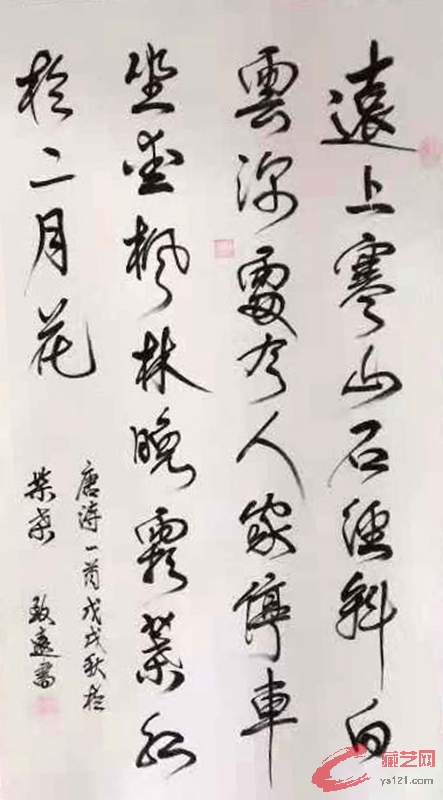 遠上寒山石徑斜白
雲深處有人家停車
坐愛楓林晚霜葉紅
於二月花
唐詩一首戊戌秋於
柴桑 致遠書
藏艺网
ys121.com